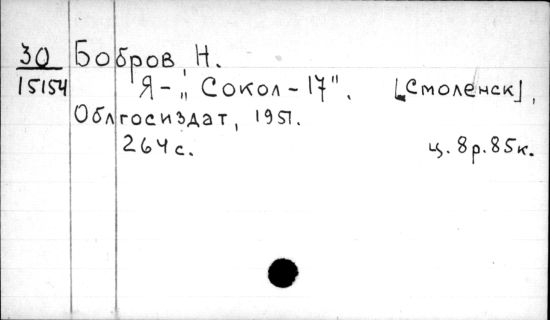 30 Бобров, Н.
15154 Я - „Сокол-17". [Смоленск],
Облгосиздат, 1951.
264 с. ц. 8р. 85к.